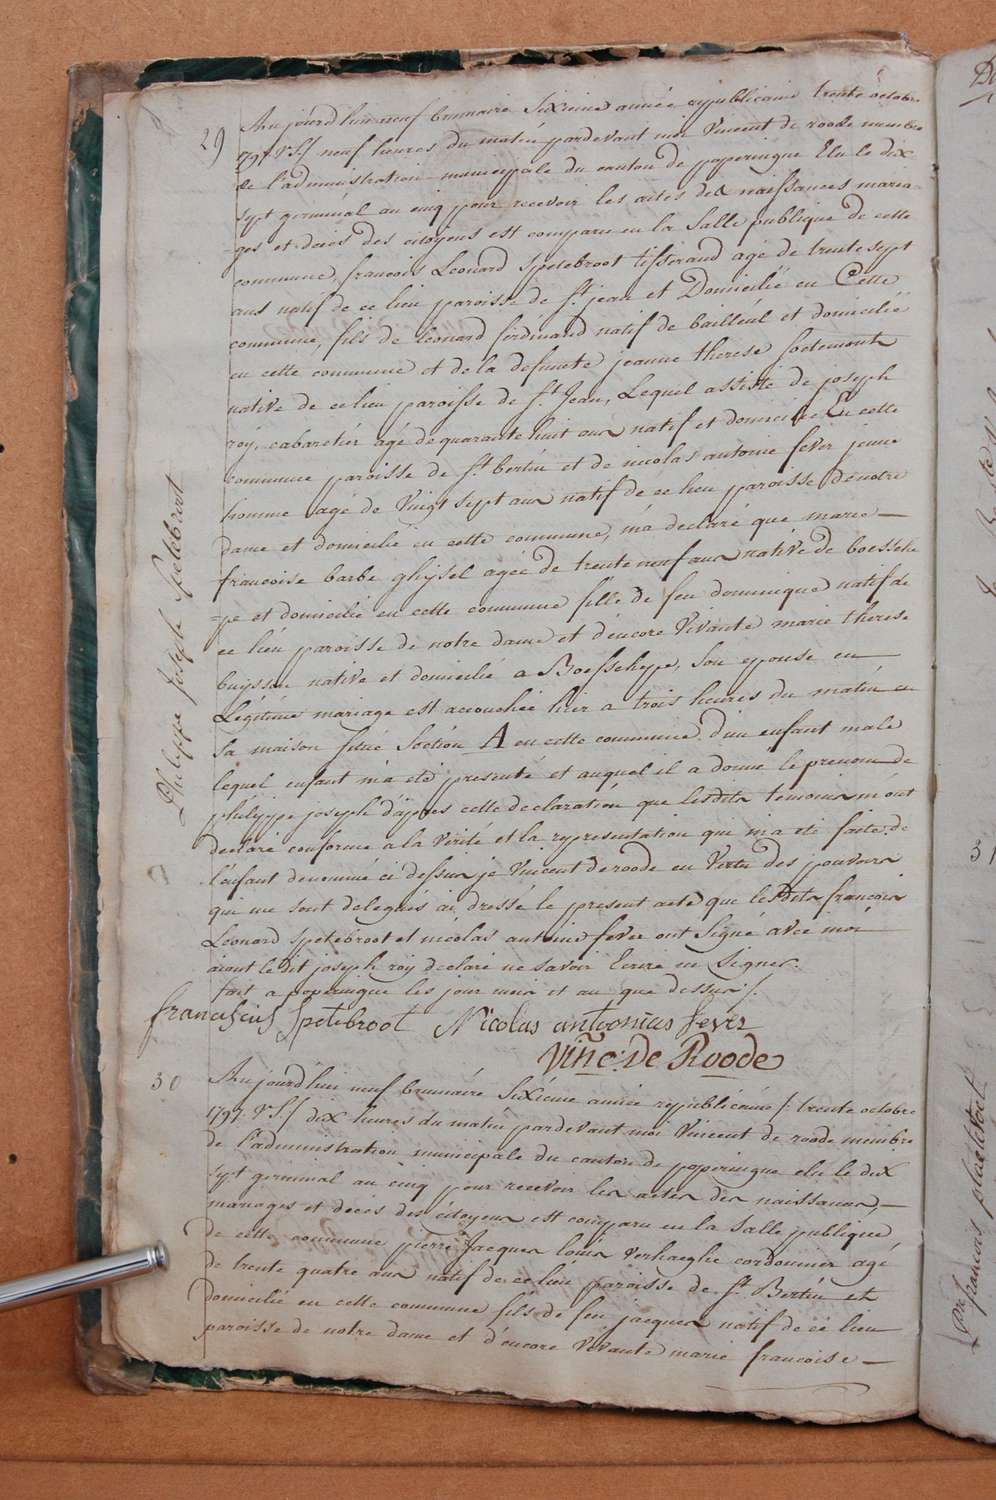 29 Aujourd'hui neuf brumaire Sixieme année republicaine trente octobre
1797 V.S./ neuf heures du matin pardevant moi Vincent de roode membre
de l'administration municipale du canton de poperingue Elu le dix
sept germinal au cinq pour recevoir les actes des naissances maria-
ges et décès des citoyens est comparu en la Salle publique de cette
commune, françois Leonard Spetebroot tisserand agé de trente sept
ans natif de ce lieu paroisse de St jean et Domicilié en Cette
commune, fils de Leonard ferdinand natif de bailleul et domicilié
en cette commune et de la defunte jeanne therese
native de ce lieu paroisse de St Jean, Lequel assisté de joseph
roÿ, cabaretier agé de quarante huit ans natif et domicilié En cette
commune paroisse de St bertin et de nicolas antoine fever jeune
homme agé de Vingt sept ans natif de ce lieu paroisse de notre
dame et domicilié en cette commune, m'a declaré que marie —
francoise barbe ghÿsel agée de trente neuf ans native de boesche
=pe et domicilié en cette commune fille de feu dominique natif de
ce lieu paroisse de notre dame et d'encore Vivante marie therese
buÿssen native et domicilié a Boesscheppe, son epouse en
Légitime mariage est accouchée hier a trois heures du matin en
sa maison situé Section A en cette commune d'un enfant male
lequel enfant m'a eté presenté et auquel il a donné le prenom de
philippe joseph d'après cette declaration que lesdits temoins m'ont
declaré conforme a la Verité et la representation qui m'a eté faite de
l'enfant denommé ci dessus je Vincent de roode en Vertu des pouvoirs
qui me sont delegués ai dressé le present acte que lesdits françois
Léonard Spetebroot et nicolas antoine fever ont Signé avec moi
aiant ledit joseph roÿ declaré ne savoir Ecrire ni Signer.
fait a poperingue les jour mois et an que dessus /.
franciscus Spetebroot Nicolas antonius fever
Vinc: De Roode
Philippe Joseph Spetebroot
30 Aujourd'hui neuf brumaire Sixieme année republicaine /: trente octobre
1797 V.S./ dix heures du matin pardevant moi Vincent de roode membre
de l'administration municipale du canton de poperingue elu le dix
sept germinal au cinq pour recevoir les actes des naissances, —
mariages et décès des citoyens est comparu en la Salle publique
de cette commune pierre Jacques louis verhaeghe cordonnier agé
de trente quatre ans natif de ce lieu paroisse de St Bertin et
domicilié en cette commune fils de feu jacques natif de ce lieu
paroisse de notre dame et d'encore Vivante marie francoise —
31